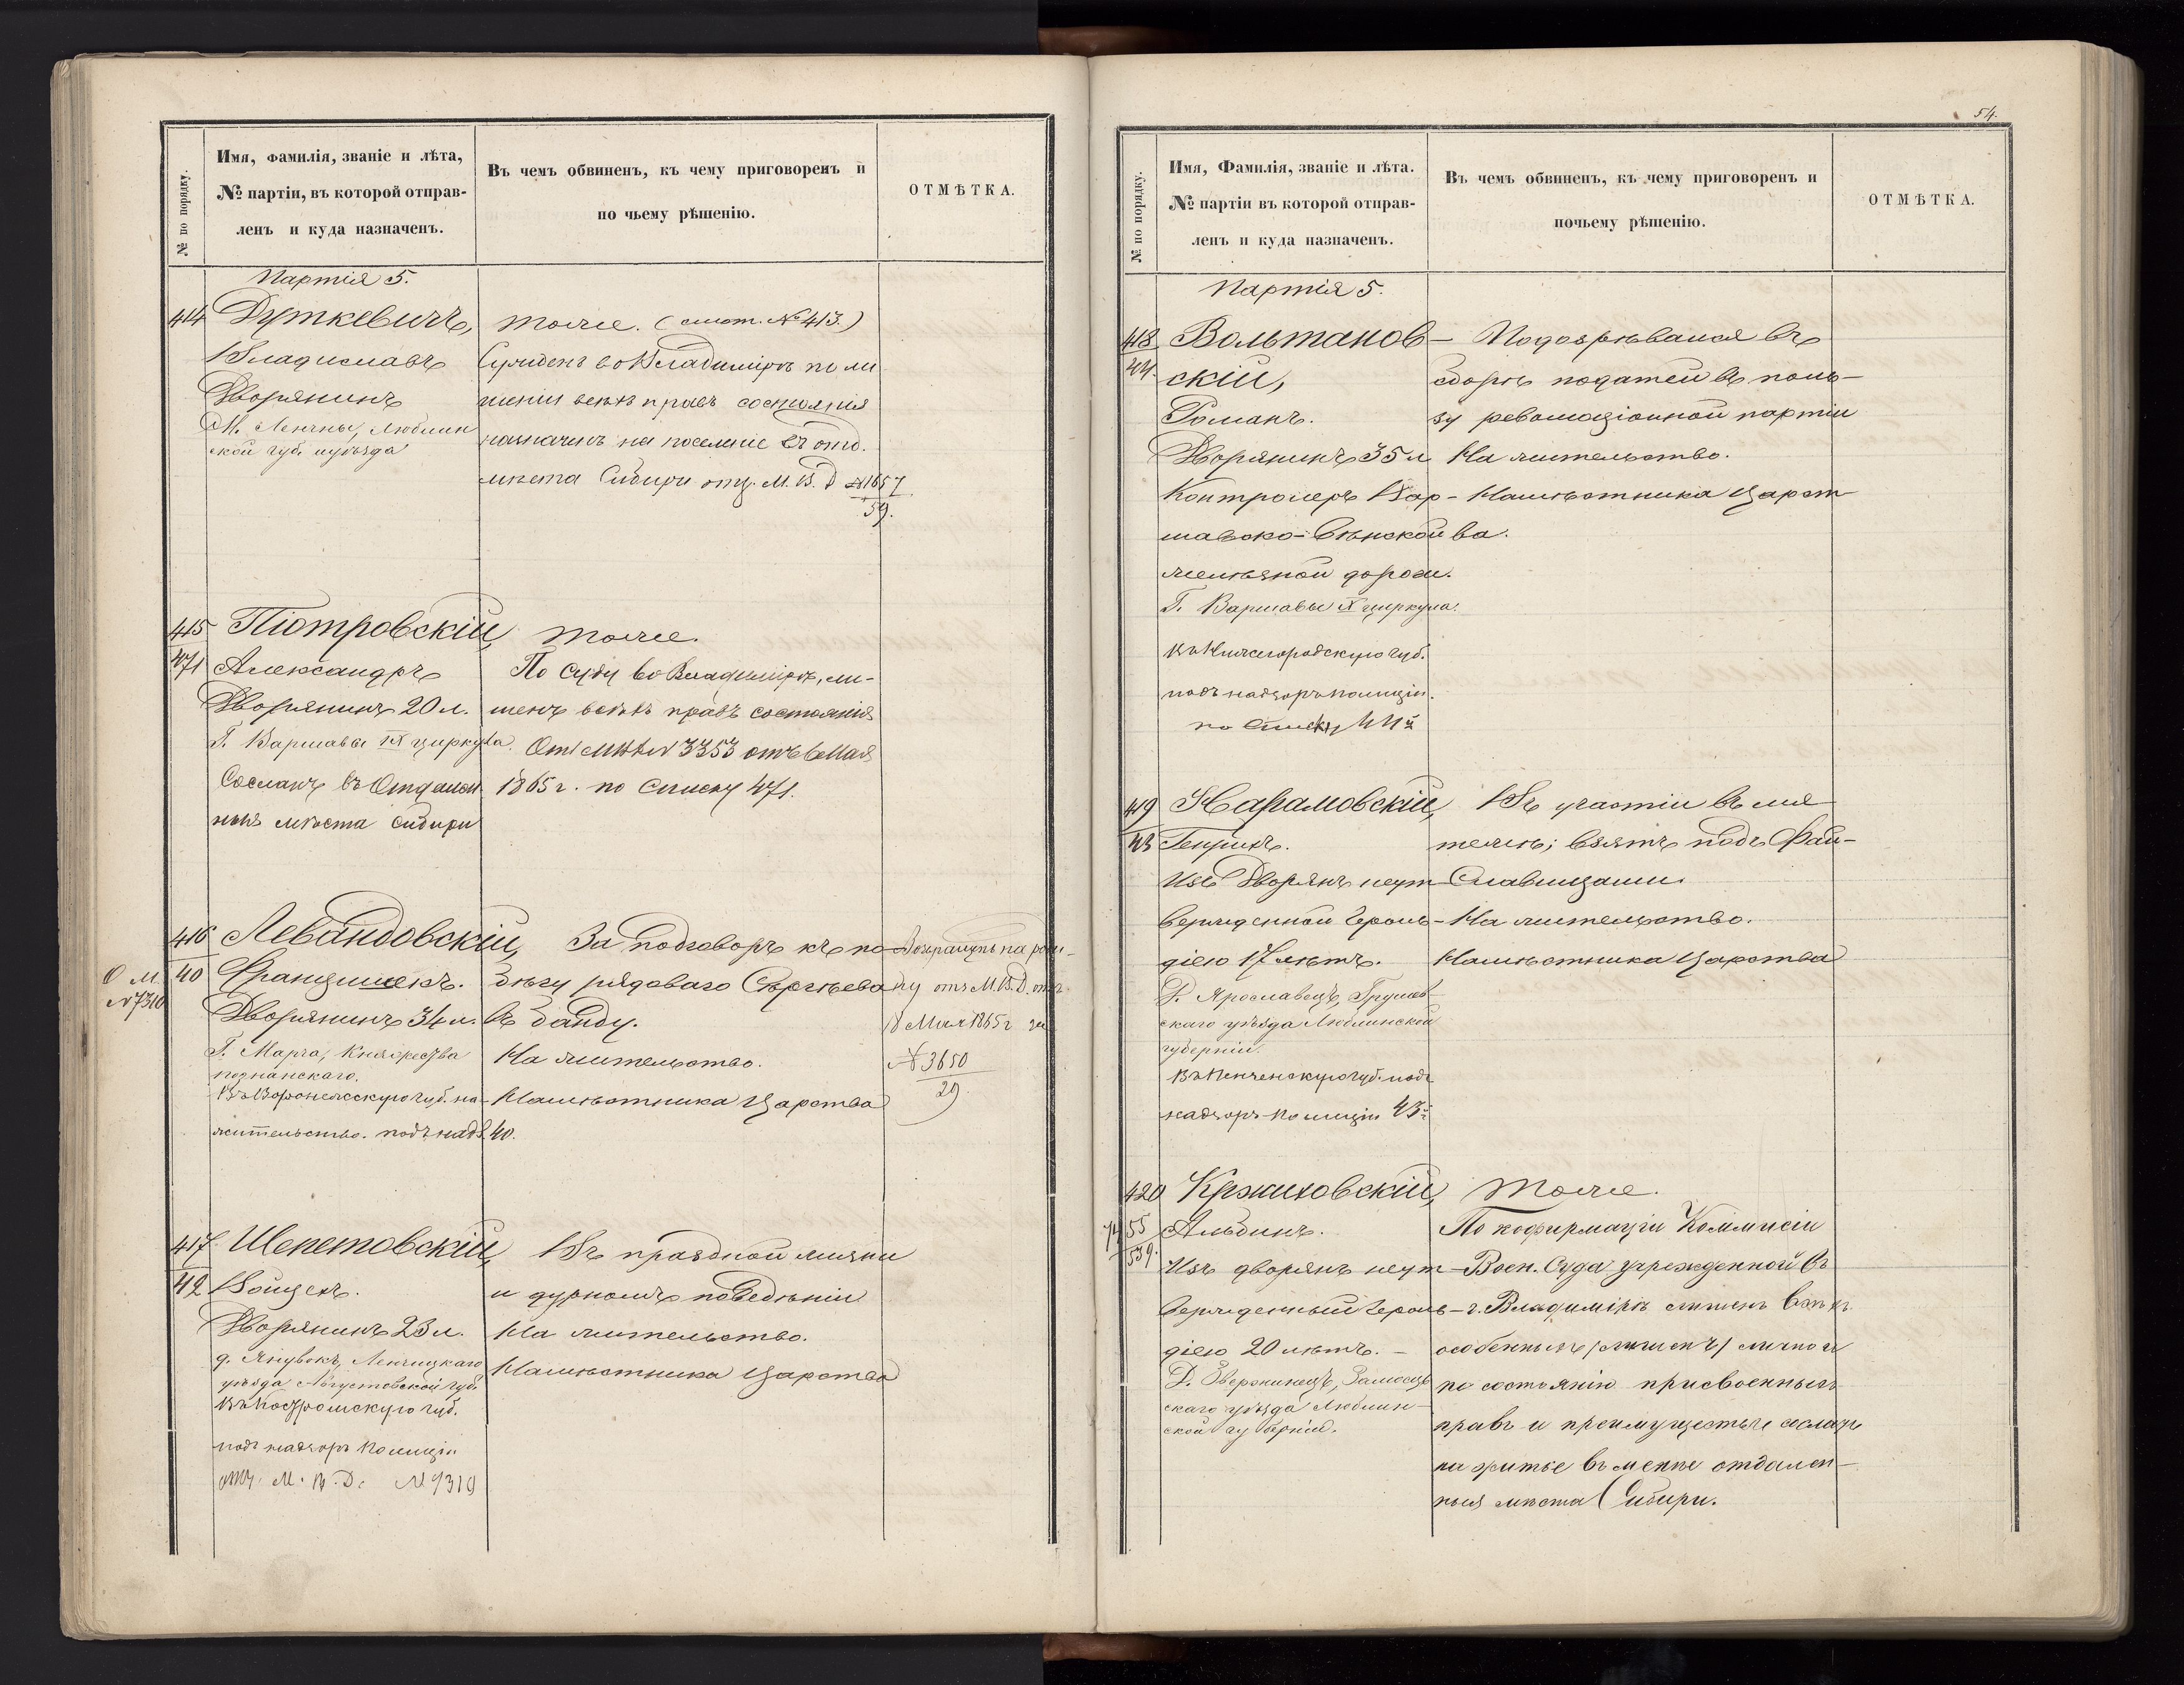 № по порядку.
Имя, фамилія, званіе и лѣта,
№ партіи, въ которой отправ-
ленъ и куда назначенъ.
Въ чемъ обвиненъ, къ чему приговоренъ и
по чьему рѣшенію.
ОТМѢТКА.
Партія 5.
414 Дуткевичъ,
Владиславъ
Дворянинъ
М. Ленчны, Люблин
ской губ. и уѣзда
тоже. (смот. № 413.)
Сужденъ во Владимірѣ по ли
шеніи всѣхъ правъ состоянія
назначенъ на поселеніе въ отд.
мѣста Сибири отц. М. В. Д №1657
59.
415 Піотровскій,
471 Александръ
Дворянинъ 20 л.
Г. Варшавы IX циркула.
Сосланъ въ Отдален
ныя мѣста Сибири
тоже.
По Суду во Владимірѣ, ли-
шенъ всѣхъ правъ состоянія
№ 3353 отъ 6 Мая
1865 г. по Списку 471.
О М.
№ 7310
416 Левандовскій,
40 Францишекъ.
Дворянинъ 34 л.
Г. Марга, Княжества
познанскаго.
Въ Воронежскую губ. на
жительство. подъ надз. 40.
За подговоръ къ по
бѣгу рядоваго Сергѣева
въ банду.
На жительство.
Намѣстника Царства
Возвращенъ на роди-
ну отъ М. В. Д. отъ
18 Мая 1865 г за
№ 3650
29.
417 Шепетовскій,
42 Войцехъ.
Дворянинъ 23 л.
уѣзда Августовской губ.
Въ Костромскую губ.
подъ надзоръ полиціи
отц. М. В. Д. № 7319
Въ праздной жизни
и дурномъ поведѣніи
На жительство.
Намѣстника Царства
54.
№ по порядку.
Имя, Фамилія, званіе и лѣта.
№ партіи въ которой отправ-
ленъ и куда назначенъ.
Въ чемъ обвиненъ, къ чему приговоренъ и
почьему рѣшенію.
ОТМѢТКА.
Партія 5.
418 Вольтанов-
44. скій,
Романъ.
Дворянинъ 35 л
Контролеръ Вар-
шавско-Вѣнской
желѣзной дороги.
Г. Варшавы IX циркула.
въ Нижегородскую губ.
подъ надзоръ полиціи.
по Списку 44й
Подозрѣвался въ
сборѣ податей въ поль-
зу революціонной партіи
На жительство.
Намѣстника Царст
ва.
419 Харамовскій,
43 Генрихъ.
Изъ Дворянъ неут-
вержденной Героль-
діею 17 лѣтъ.
Д. Ярославецъ, Грубеш-
скаго уѣзда Люблинской
губерніи.
Въ Пензенскую губ. подъ
надзоръ полиціи 43й
Въ участіи въ мя
тежѣ; взятъ подъ Фай-
Славицами.
На жительство.
Намѣстника Царства
420 Кржиховскій,
55 Альбинъ.
539.
Изъ дворянъ неут-
вержденный Героль-
діею 20 лѣтъ. -
Д. Звержинецъ, Замосць
скаго уѣзда Люблин-
ской губерніи.
тоже.
По кофирмаціи Коммисіи
Воен. Суда учрежденной въ
г. Владимірѣ лишенъ всѣхъ
особенныхъ лично и
по состоянію присвоенныхъ
правъ и преимуществъ сосланъ
на житье въ менѣе отдален-
ныя мѣста Сибири.